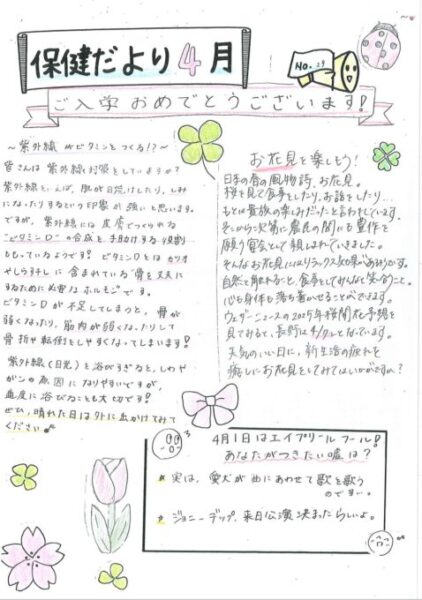 保健だより4月
NO. 29
ご入学おめでとうございます!
～紫外線がビタミンをつくる!?～
皆さんは紫外線対策をしていますか?
紫外線といえば、肌が日焼けしたり、しみ
になったりするという印象が強いと思います。
ですが、紫外線には皮膚でつくられる
"ビタミンD"の合成を手助けする役割
ももっているようです! ビタミンDとはカツオ
やしらす干しに含まれている骨を丈夫に
するために必要なホルモンです。
ビタミンDが不足してしまうと、骨が
弱くなったり、筋肉が弱くなったりして
骨折や転倒をしやすくなってしまいます!
紫外線(日光)を浴びすぎると、しわや
ガンの原因になりやすいですが、
適度に浴びることも大切です!
ぜひ、晴れた日は外に出かけてみて
ください
お花見を楽しもう!
日本の春の風物詩、お花見。
桜を見て食事をしたり、お話をしたり…
もとは貴族の楽しみだったと言われています。
そこから次第に農民の間にも豊作を
願う宴会として親しまれていきました。
そんなお花見にはリラックス効果があるそうです。
自然と触れあうこと、食事をしてみんなと笑い合うこと。
心も身体も落ち着かせることができます。
ウェザーニュースの2025年桜開花予想を
見てみると、長野は4/7となっています。
天気のいい日に、新生活の疲れを
癒しにお花見をしてみてはいかがですか?
4月1日はエイプリールフール!
あなたがつきたい嘘は?
実は、愛犬が曲にあわせて歌を歌う
のですよ。
ジョニーデップ、来日公演決まったらしいよ。